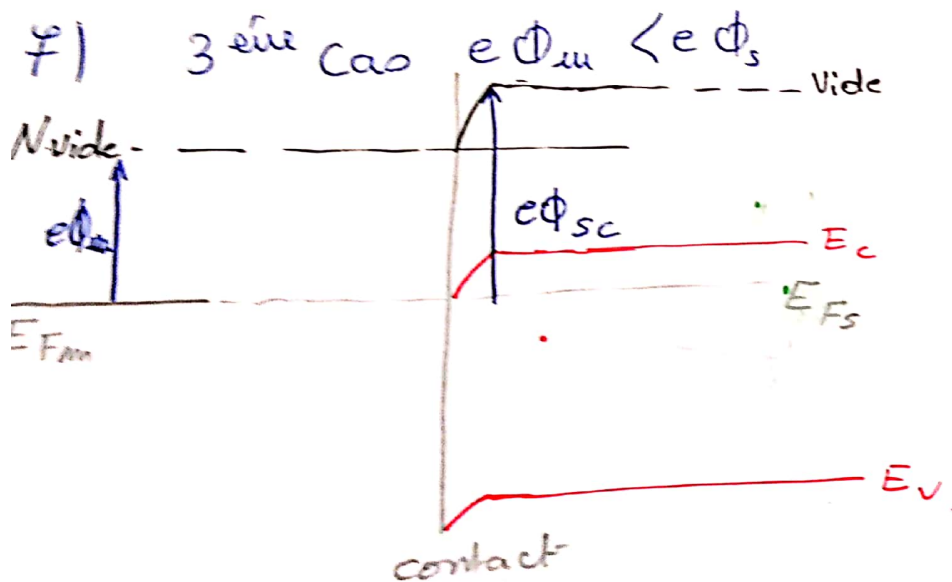 7) 3 éme Cas eΦm < eΦs
Vide
N vide
eΦm
eΦsc
Ec
EFs
EFm
Ev
contact